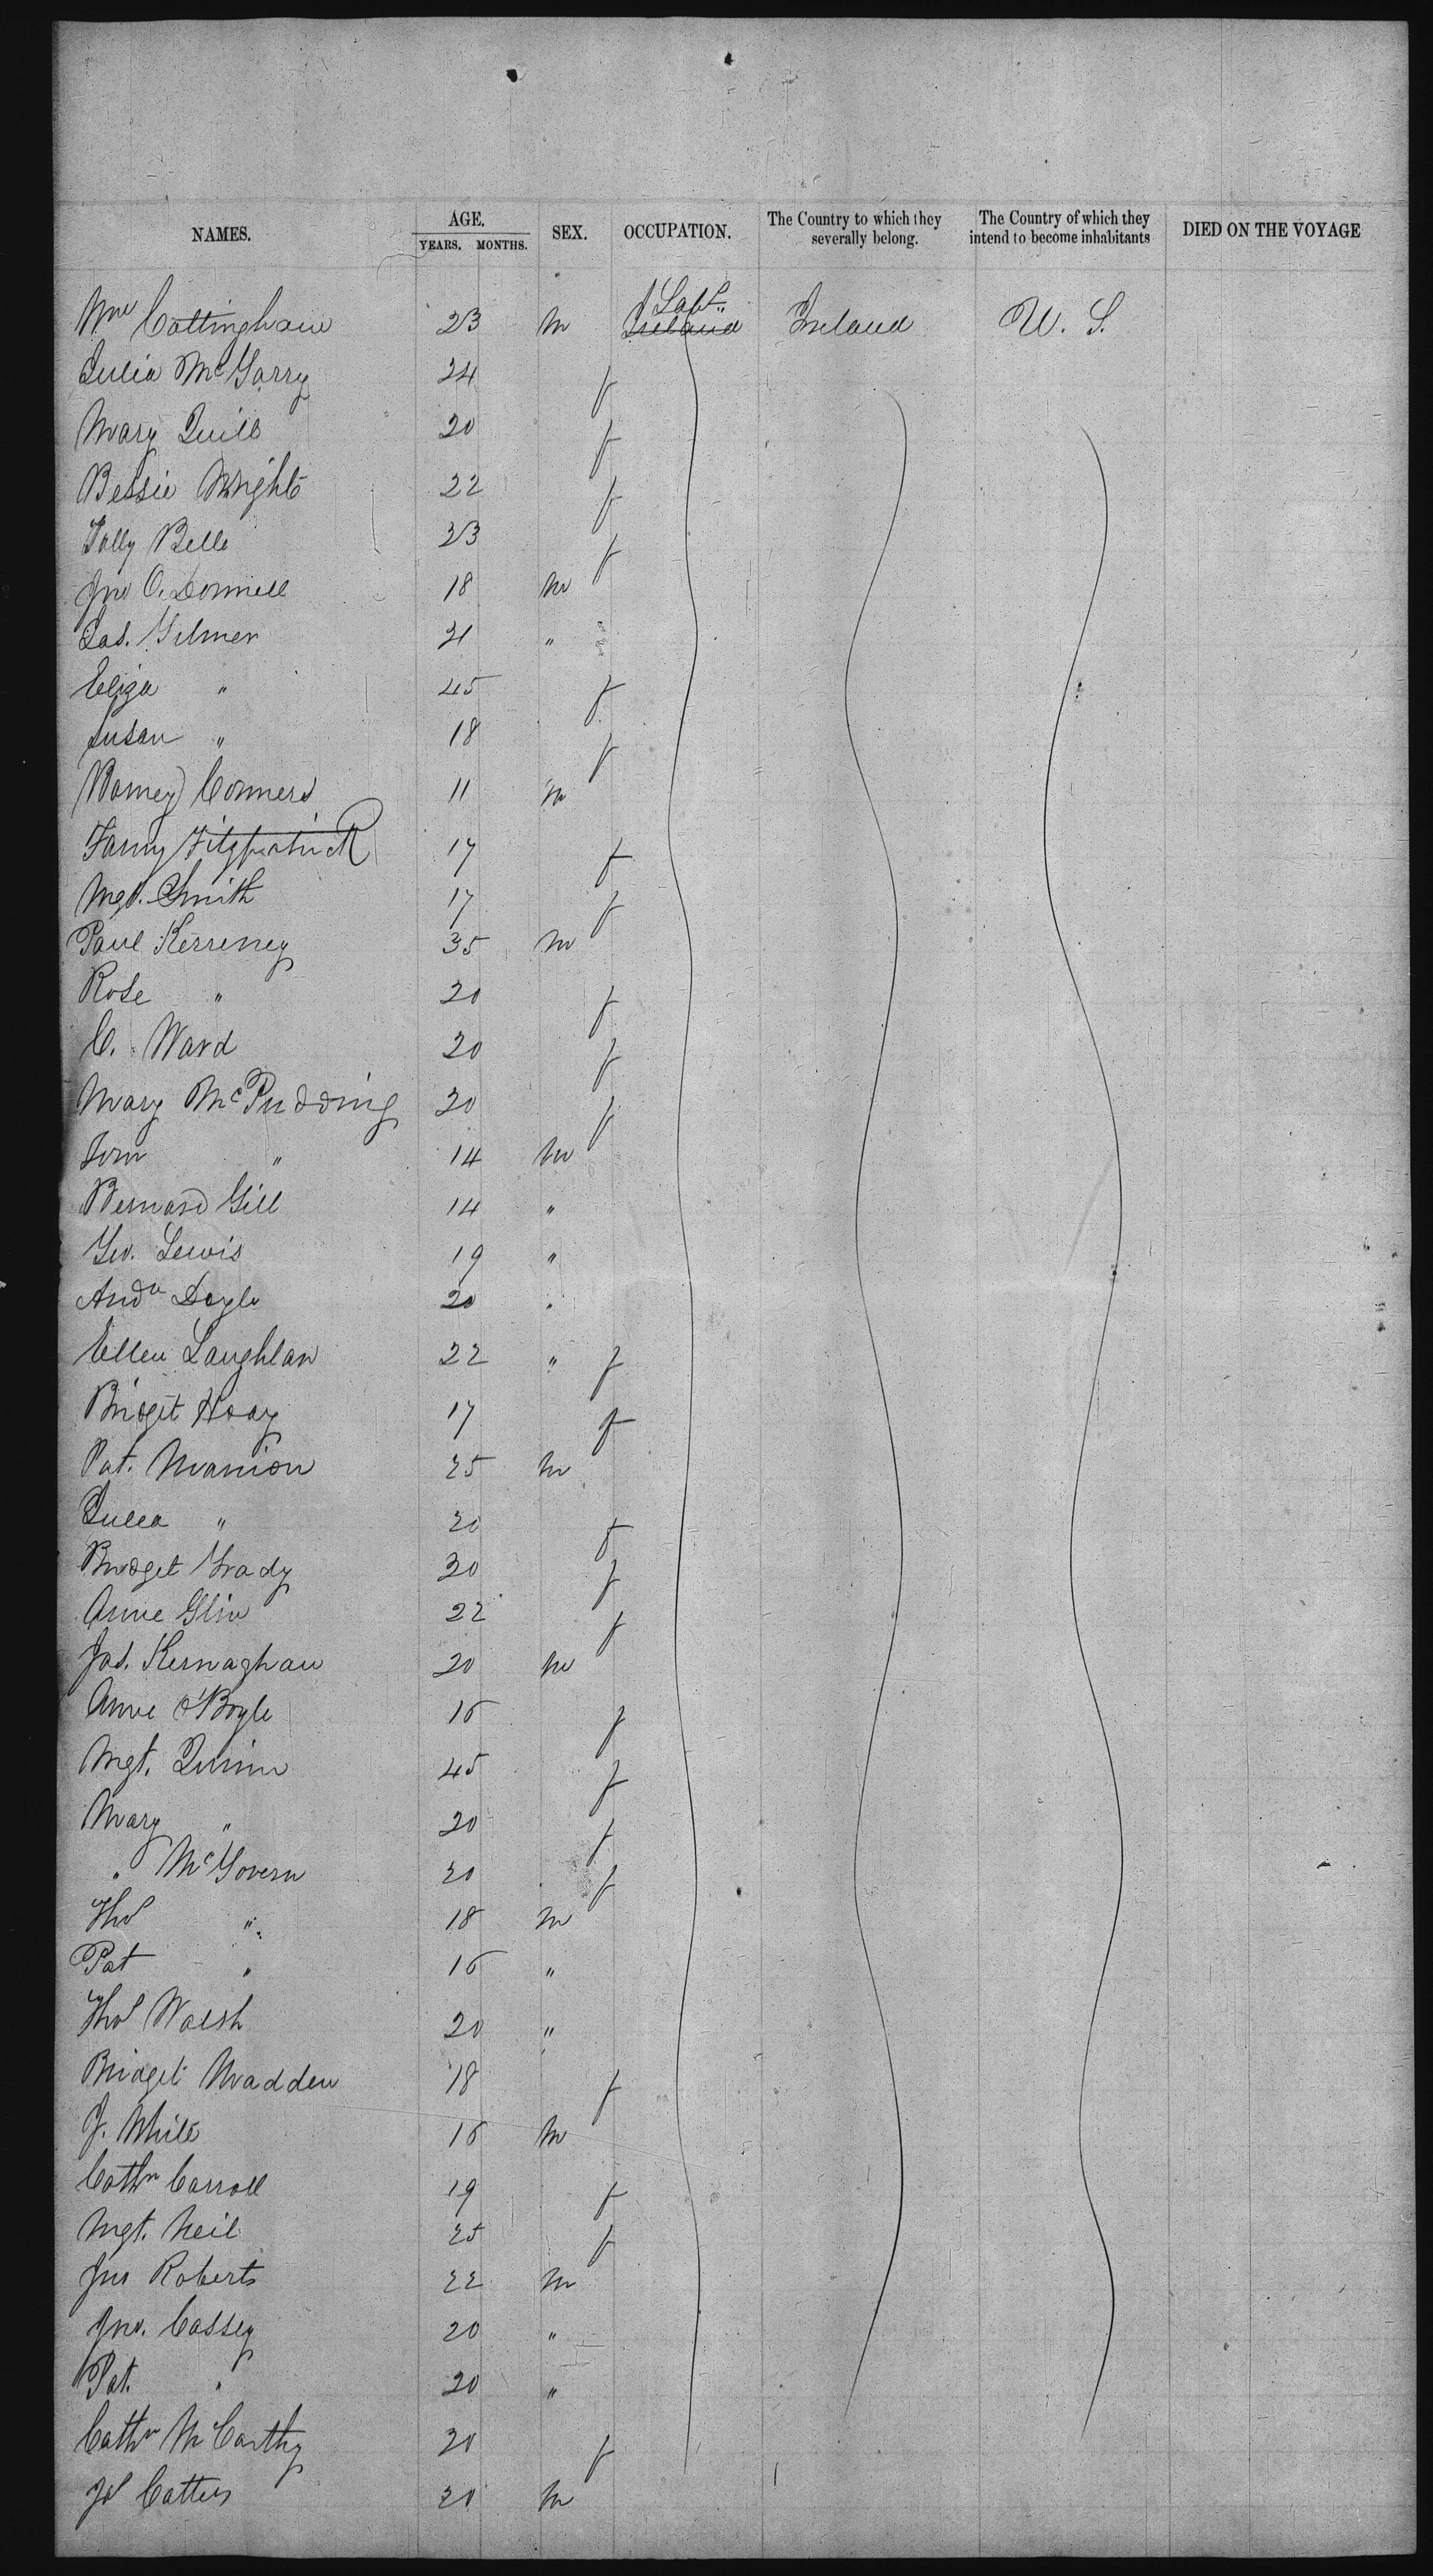 NAMES. AGE. YEARS. MONTHS. SEX. OCCUPATION. The Country to which they severally belong. The Country of which they intend to become inhabitants DIED ON THE VOYAGE
Wm Cottingham 23 m Labr. Ireland Ireland U. S.
Julia McGarry 24 f
Mary Quill 20 f
Bessie Wright 22 f
Bell 23 f
Jno O'Donnell 18 m
Jas. Gilmer 21 "
Eliza " 45 f
Susan " 18 f
Barney Conners 11 m
Fanny Fitzpatrick 17 f
Mgt. Smith 17 f
Paul Kerreney 35 m
Rose " 20 f
C. Ward 20 f
Mary McPudding 20 f
Tom " 14 m
Bernard Gill 14 "
Geo. Lewis 19 "
Andw Doyle 20 "
Ellen Laughlan 22 " f
Bridget Hoay 17 f
Pat. Manion 25 m
Julia " 20 f
Bridget Grady 20 f
Anne Glin 22 f
Jas. Kernaghan 20 m
Anne O'Boyle 16 f
Mgt. Quinn 45 f
Mary " 20 f
" McGovern 20 f
Thos " 18 m
Pat " 16 "
Thos Walsh 20 "
Bridget Madden 18 f
J. White 16 m
Cathn Carroll 19 f
Mgt. Neil 25 f
Jno Roberts 22 m
Jno. Cassey 20 "
Pat. " 20 "
Cathn McCarthy 20 f
20 m